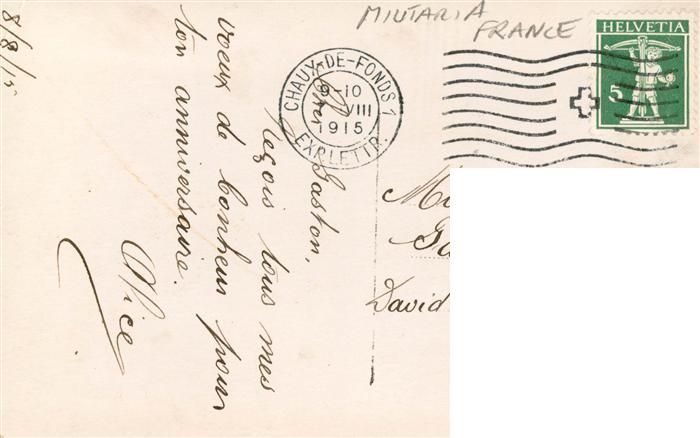 MILITARIA
FRANCE
HELVETIA
5
CHAUX-DE-FONDS 1
9-10
VIII
1915
EXP. LETTR.
8/8/15
Gaston,
reçois tous mes
voeux de bonheur pour
ton anniversaire.
Alice
David